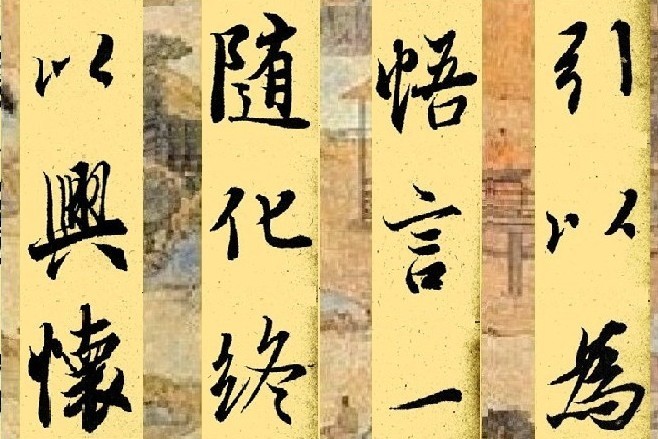 引以為
悟言一
随化终
以興懷